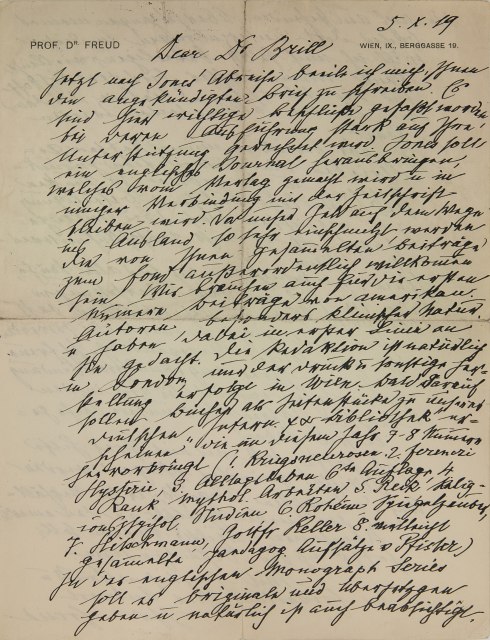 5. X. 19
PROF. DR. FREUD
WIEN, IX., BERGGASSE 19.
Dear Dr Brill
Jetzt nach Jones' Abreise beeile ich mich, Ihnen
den angekündigten Brief zu schreiben. Es
sind hier wichtige Beschlüsse gefaßt worden
bei deren Ausführung stark auf Ihre
Unterstützung gerechnet wird. Jones soll
ein englisches Journal herausbringen,
welches vom Verlag gemacht wird u in
inniger Verbindung mit der Zeitschrift
bleiben wird. Da unser Geld auf dem Wege
ins Ausland so sehr einschmilzt werden
die von Ihnen gesammelten Beiträge
zum Fond außerordentlich willkommen
sein. Wir brauchen auch für die ersten
Nummern Beiträge von amerikan.
Autoren besonders klinischer Natur.
u haben dabei in erster Linie an
Sie gedacht. Die Redaktion ist natürlich
in London, und der Druck u sonstige Her-
stellung erfolgt in Wien. Bald darauf
sollen Bücher als Seitenstücke zu unserer
deutschen Intern. ΨΑ Bibliothek er-
scheinen, die in diesem Jahr 7-8 Nummern
hervorbringt (1. Kriegsneurosen 2. Ferenczi
Hysterie, 3. Alltagsleben 6te Auflage, 4
Rank, mythol. Arbeiten 5 Reik, Relig-
ionspsychol. Studien 6 Róheim Spiegelzauber,
7. Hitschmann, Gottfr Keller 8. vielleicht
gesammelte pädagog Aufsätze v Pfister)
In der englischen Monograph Series
soll es Originale und Übersetzungen
geben u natürlich ist auch beabsichtigt,